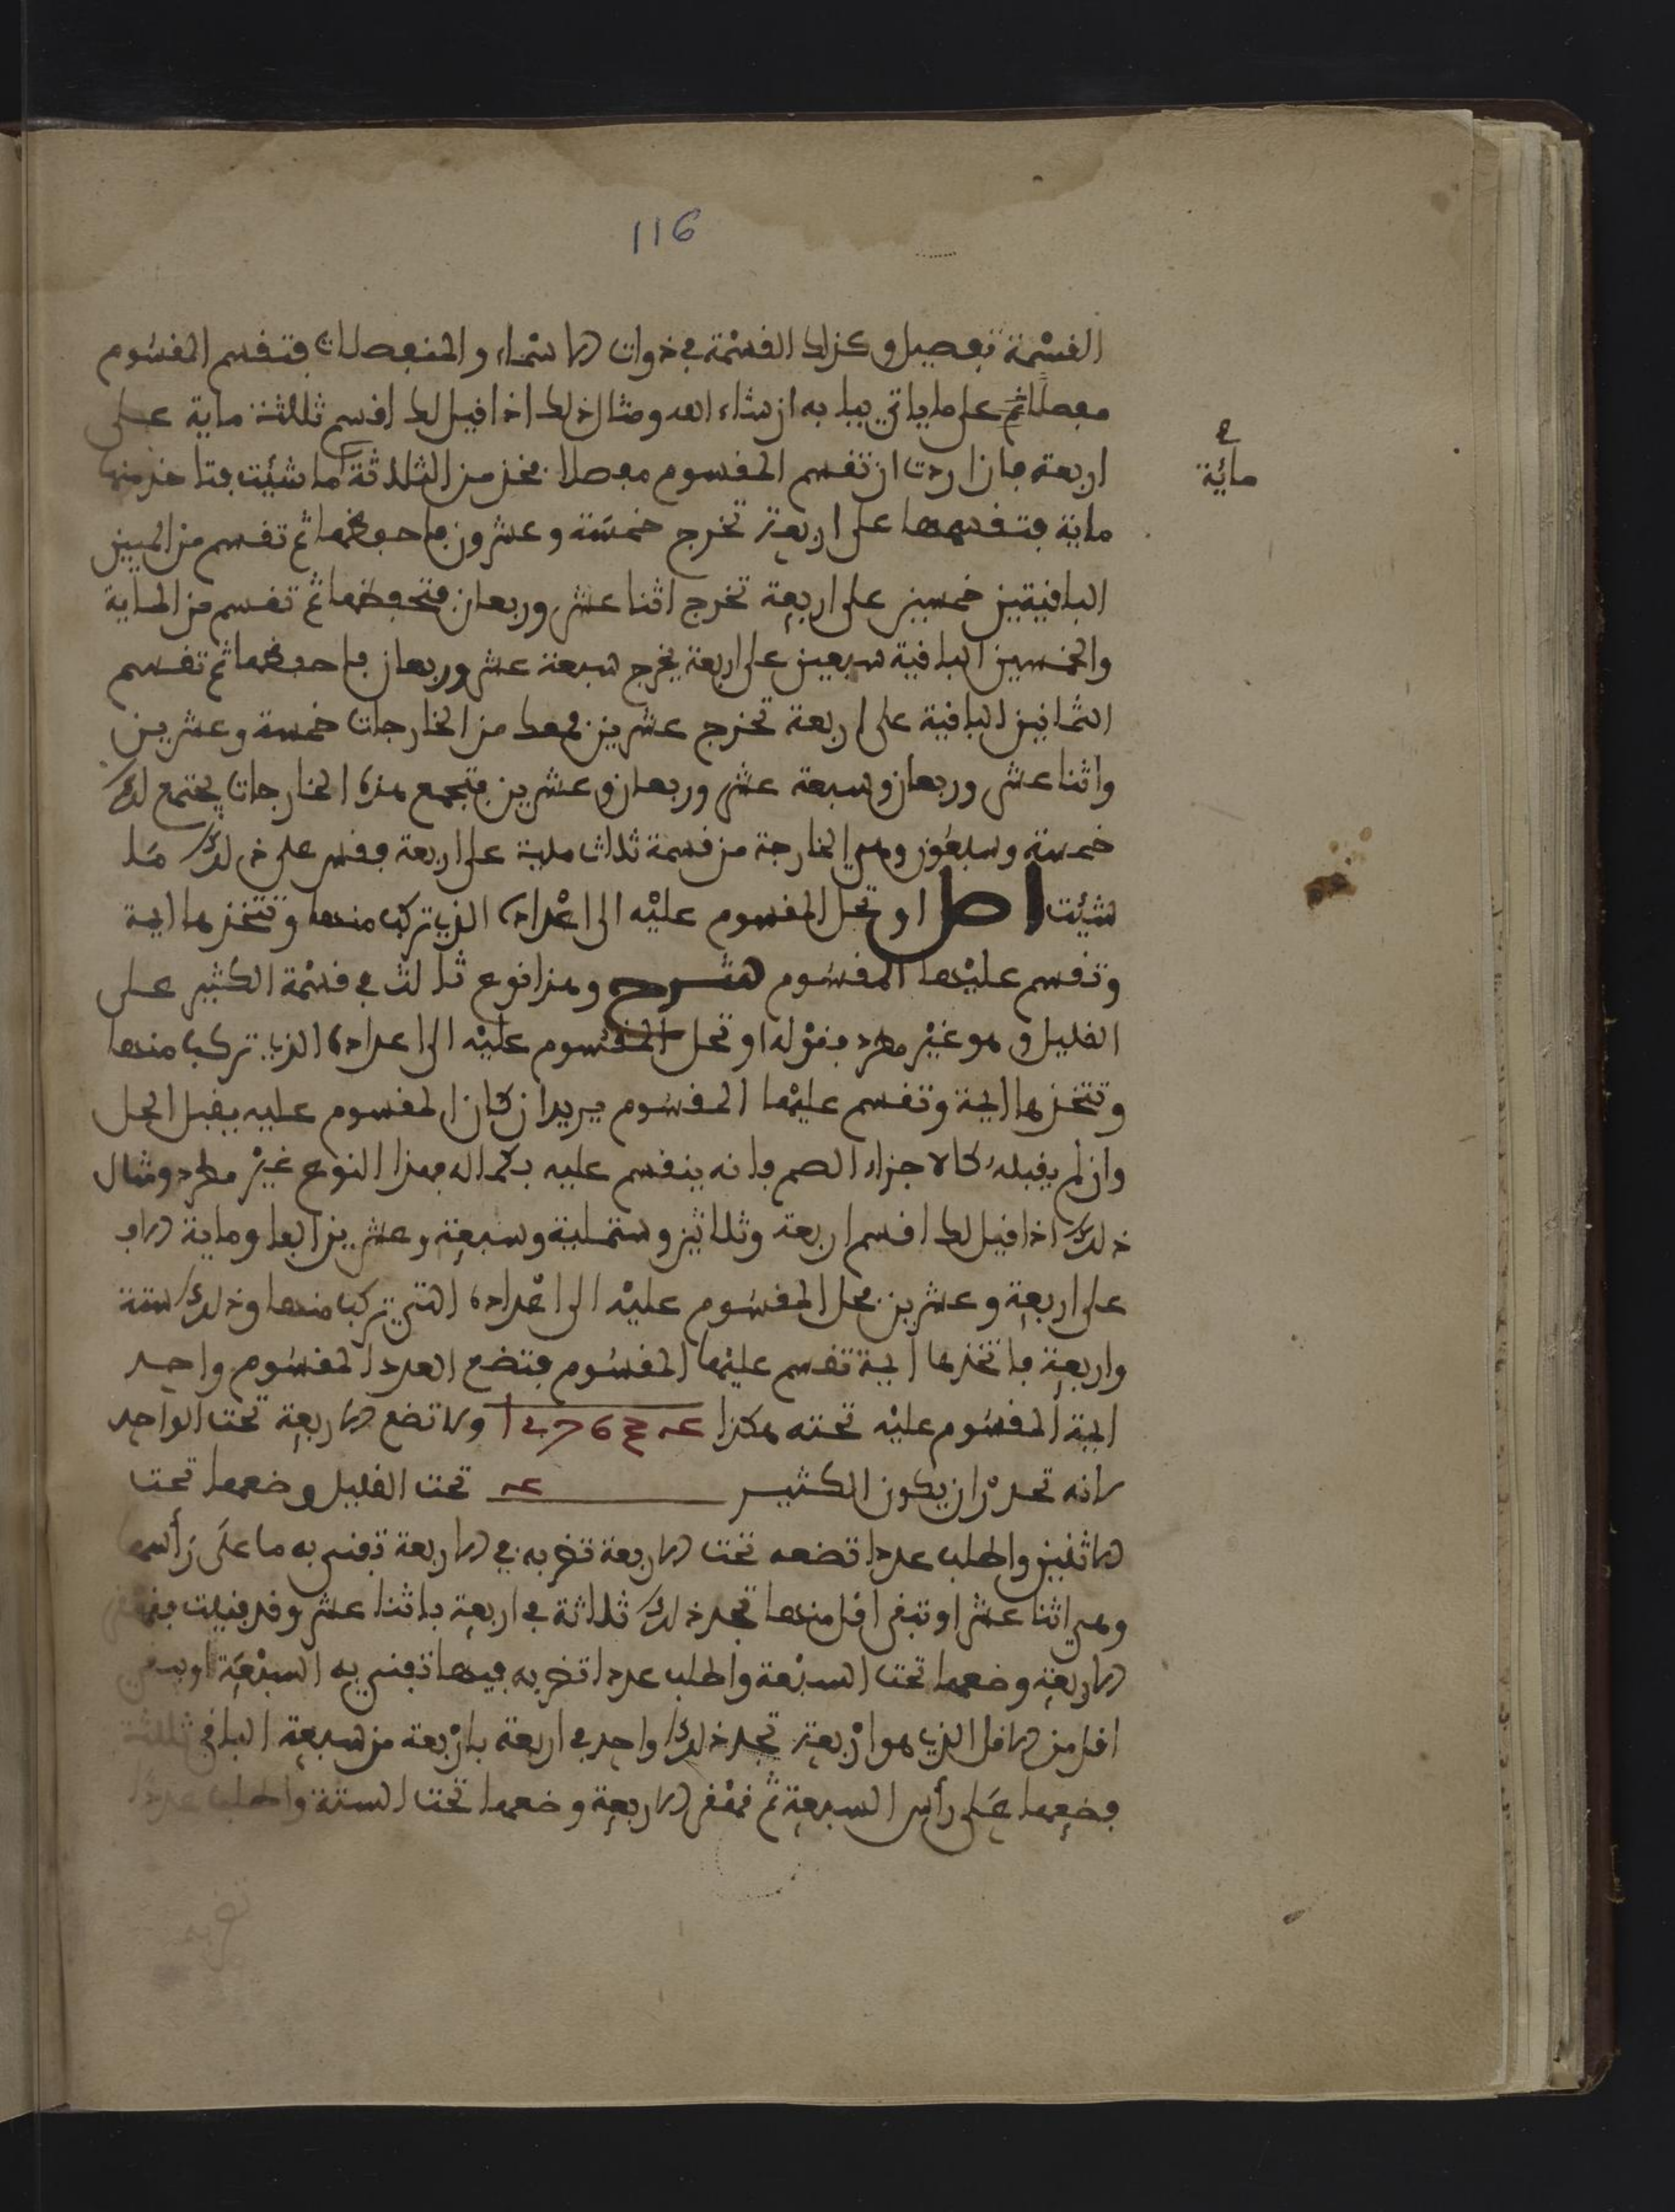 116
القسمة تفصيل وكذلك القسمة في ذوات الاسماء والمنفصلات فتقسم المقسوم
مفصلا ثم على ما ياتي بيا به ان شاء الله ومثال ذلك اذا قيل لك اقسم ثلثة ماية على
اربعة فان اردت ان تقسم المقسوم مفصلا فخذ من الثلاثة ما شئت فتاخذ منها
مائة
ماية فتقسمها على اربعة تخرج خمسة وعشرون فاحفظها ثم تقسم من الميتين
الباقيتين خمسين على اربعة تخرج اثنا عشر وربعان فتحفظها ثم تقسم من الماية
والخمسين الباقية سبعين على اربعة يخرج سبعة عشر وربعان فاحفظها ثم تقسم
الثمانين الباقية على اربعة تخرج عشرين فمعك من الخارجات خمسة وعشرين
واثنا عشر وربعان وسبعة عشر وربعان وعشرين فتجمع هذه الخارجات يجتمع لك
خمسة وسبعون وهي الخارجة من قسمة ثلاث ماية على اربعة وقس على ذلك ما
شئت اصل او تحل المقسوم عليه الى اعداده الذي تركب منها وتتخذها ايمة
وتقسم عليها المقسوم شرح وهذا نوع ثالث في قسمة الكثير على
القليل وهو غير مطرد فقوله او تحل المقسوم عليه الى اعداده الذي تركب منها
وتتخذها ايمة وتقسم عليها المقسوم يريد ان كان المقسوم عليه يقبل الحل
وان لم يقبله كالاجزاء الصم فانه ينقسم عليه بكماله فهذا النوع غير مطرد ومثال
ذلك اذا قيل لك اقسم اربعة وثلاثين وستماية وسبعة وعشرين الفا وماية الف
على اربعة وعشرين فحل المقسوم عليه الى اعداده التي تركب منها وذلك ستة
واربعة فاتخذها ايمة تقسم عليها المقسوم فتضع العدد المقسوم واحد
ايمة المقسوم عليه تحته هكذا 127634 ولا تضع الاربعة تحت الواحد
لانه تحذر ان يكون الكثير 4 تحت القليل وضعها تحت
الاثنين واطلب عددا تضعه تحت الاربعة تضربه في الاربعة تفني به ما على رأسها
وهي اثنا عشر او تبقى اقل منها تجد ذلك ثلاثة في اربعة باثنا عشر وقد فنيت
الاربعة وضعها تحت السبعة واطلب عددا تضربه فيها تفني به السبعة او يبقى
اقل من الاقل الذي هو اربعة تجد ذلك واحد في اربعة باربعة من سبعة الباقي ثلثة
فضعها على رأس السبعة ثم قهقر الاربعة وضعها تحت الستة واطلب عددا
تضربه